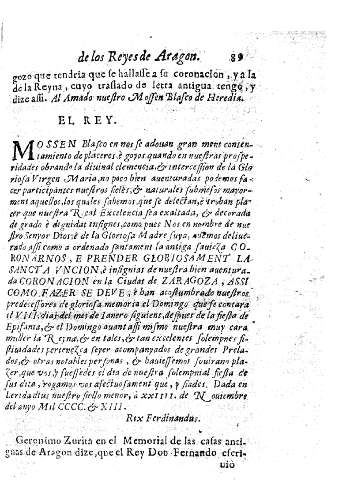 de los Reyes de Aragon. 89
gozo que tendria que se hallasse a su coronacion, y a la
de la Reyna, cuyo traslado de letra antigua tengo, y
dize assi. Al Amado nuestro Mossen Blasco de Heredia.
EL REY.
MOSSEN Blasco en nos se adouan gran mens conten-
tamiento de plazeres, è goyos quando en nuestras prospe-
ridades obrando la diuinal clemencia, & intercession de la Glo-
riosa Virgen Maria, no poco bien auenturadas podemos fa-
cer participantes nuestros fieles, & naturales submesos mayor-
ment aquellos, los quales sabemos, que se delectan, è troban pla-
cer que nuestra Real Excelencia sea exaltada, & decorada
de grado è dignidat insignes, como pues Nos en nombre de nu-
estro Senyor Dios, è de la Gloriosa Madre suya, auemos delibe-
rado assi como a ordenado santament la antiga sauieza CO-
RONARNOS, E PRENDER GLORIOSAMENT LA
SANCTA VNCION, è insignias de nuestra bien auentura-
da CORONACION en la Ciudat de ZARAGOZA, ASSI
COMO FAZER SE DEVE, è han acostumbrado nuestros
predecessores de gloriosa memoria el Domingo que se contara
el VIII. dia del mes de Ianero siguient, despues de la fiesta de
Epifania, & el Domingo auant assi mismo nuestra muy cara
muller la Reyna, & en tales, & tan excelentes solempnes fi-
stiuidades pertenezca seyer acompanyados de grandes Prela-
dos, & otras notables personas, & hauiessemos soutrano pla-
zer, que vos y fuessedes el dia de nuestra solempnial fiesta de
sus dita, rogamos vos afectuosament que y siades. Dada en
Lerida dius nuestro siello menor, à XXIIII. de Nouiembre
del anyo Mil CCCC. & XIII.
Rex Ferdinandus.
Geronimo Zurita en el Memorial de las casas anti-
guas de Aragon dize, que el Rey Don Fernando escri-
uiò